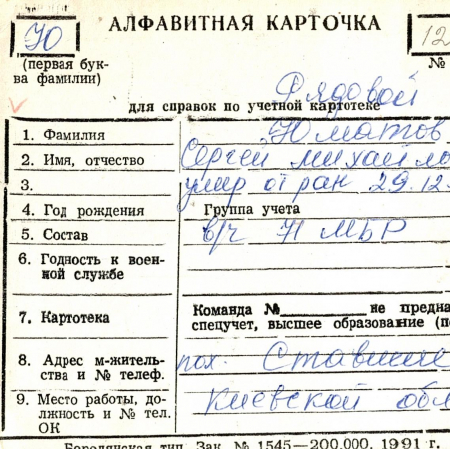 Ю АЛФАВИТНАЯ КАРТОЧКА 12
(первая бук-
ва фамилии)
№
Рядовой
для справок по учетной картотеке
1. Фамилия Юматов
2. Имя, отчество Сергей Михайло
3. умер от ран 29.12.
4. Год рождения Группа учета
5. Состав в/ч МБР
6. Годность к воен-
ной службе
7. Картотека Команда № не предна
спецучет, высшее образование (п
8. Адрес м-житель-
ства и № телеф. пох. Ставище
9. Место работы, до-
лжность и № тел.
ОК Киевской обл
Бородянская тип. Зак. № 1545—200.000. 1991 г.